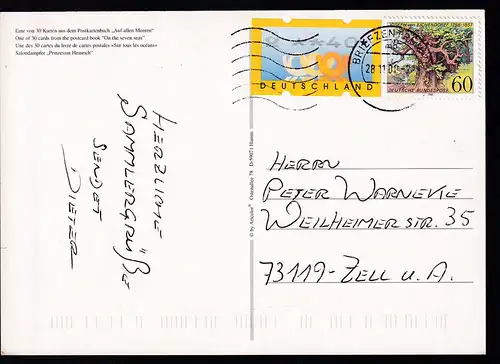 Eine von 30 Karten aus dem Postkartenbuch „Auf allen Meeren“
One of 30 cards from the postcard book "On the seven seas"
Une des 30 cartes du livre de cartes postales «Sur tous les océans»
Salondampfer „Prinzessin Heinrich“
DEUTSCHLAND
BRIEFZENTRUM
28.11.00
1788-1857
DEUTSCHE BUNDESPOST
60
HERZLICHE
SAMMLERGRÜßE
SENDET
DIETER
HERRN
PETER WARNEKE
WEILHEIMER STR. 35
73119-ZELL U. A.